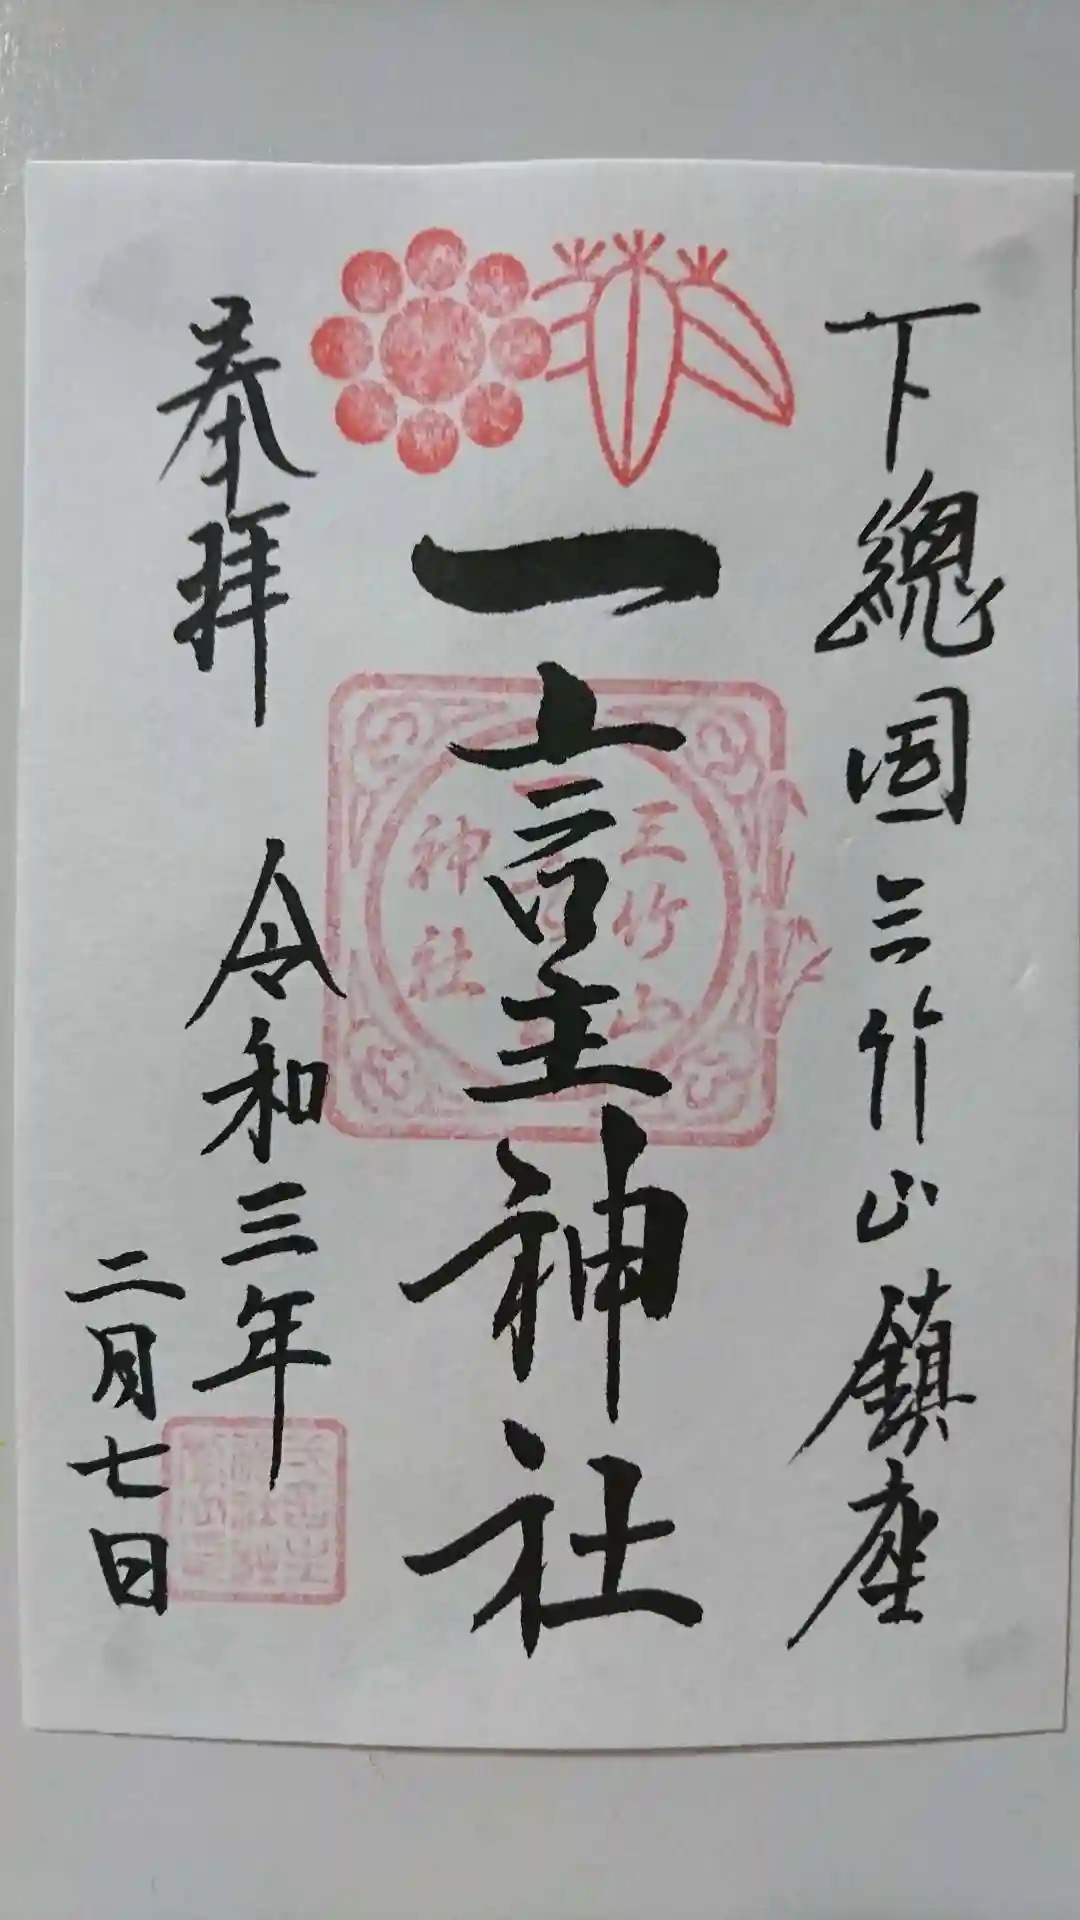 下總国三竹山鎮座
一言主神社
三竹山
神社
奉拝
令和三年
二月七日